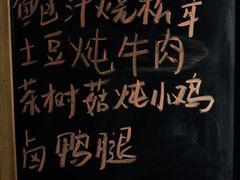 鲍汁烧松茸
土豆炖牛肉
茶树菇炖小鸡
卤鸭腿